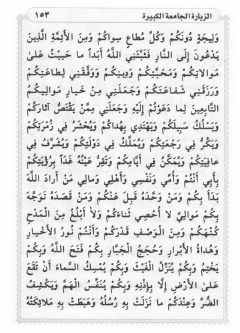 الزيارة الجامعة الكبيرة
١٥٣
وَلِيجَةٍ دُونَكُمْ وَكُلِّ مُطَاعٍ سِوَاكُمْ وَمِنَ الْأَئِمَّةِ الَّذِينَ
يَدْعُونَ إِلَى النَّارِ فَثَبَّتَنِيَ اللَّهُ أَبَداً مَا حَيِيتُ عَلَىٰ
مُوَالَاتِكُمْ وَمَحَبَّتِكُمْ وَدِينِكُمْ وَوَفَّقَنِي لِطَاعَتِكُمْ
وَرَزَقَنِي شَفَاعَتَكُمْ وَجَعَلَنِي مِنْ خِيَارِ مَوَالِيكُمُ
التَّابِعِينَ لِمَا دَعَوْتُمْ إِلَيْهِ وَجَعَلَنِي مِمَّنْ يَقْتَصُّ آثَارَكُمْ
وَيَسْلُكُ سَبِيلَكُمْ وَيَهْتَدِي بِهُدَاكُمْ وَيُحْشَرُ فِي زُمْرَتِكُمْ
وَيَكُرُّ فِي رَجْعَتِكُمْ وَيُمَلَّكُ فِي دَوْلَتِكُمْ وَيُشَرَّفُ فِي
عَافِيَتِكُمْ وَيُمَكَّنُ فِي أَيَّامِكُمْ وَتَقِرُّ عَيْنُهُ غَداً بِرُؤْيَتِكُمْ
بِأَبِي أَنْتُمْ وَأُمِّي وَنَفْسِي وَأَهْلِي وَمَالِي مَنْ أَرَادَ اللَّهَ
بَدَأَ بِكُمْ وَمَنْ وَحَّدَهُ قَبِلَ عَنْكُمْ وَمَنْ قَصَدَهُ تَوَجَّهَ
بِكُمْ مَوَالِيَّ لَا أُحْصِي ثَنَاءَكُمْ وَلَا أَبْلُغُ مِنَ الْمَدْحِ
كُنْهَكُمْ وَمِنَ الْوَصْفِ قَدْرَكُمْ وَأَنْتُمْ نُورُ الْأَخْيَارِ
وَهُدَاةُ الْأَبْرَارِ وَحُجَجُ الْجَبَّارِ بِكُمْ فَتَحَ اللَّهُ وَبِكُمْ
يَخْتِمُ وَبِكُمْ يُنَزِّلُ الْغَيْثَ وَبِكُمْ يُمْسِكُ السَّمَاءَ أَنْ تَقَعَ
عَلَى الْأَرْضِ إِلَّا بِإِذْنِهِ وَبِكُمْ يُنَفِّسُ الْهَمَّ وَيَكْشِفُ
الضُّرَّ وَعِنْدَكُمْ مَا نَزَلَتْ بِهِ رُسُلُهُ وَهَبَطَتْ بِهِ مَلَائِكَتُهُ